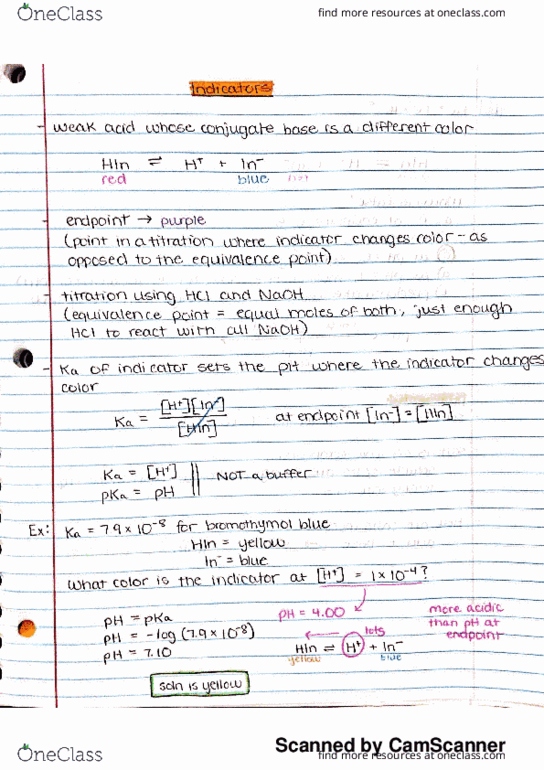 OneClass
find more resources at oneclass.com
Indicators
- weak acid whose conjugate base is a different color
HIn ⇌ H⁺ + In⁻
red blue
- endpoint → purple
(point in a titration where indicator changes color - as
opposed to the equivalence point)
- titration using HCl and NaOH
(equivalence point = equal moles of both, just enough
HCl to react with all NaOH)
- Ka of indicator sets the pH where the indicator changes
color
Ka = [H⁺][In⁻] / [HIn] at endpoint [In⁻] = [HIn]
Ka = [H⁺]
pKa = pH || NOT a buffer
Ex: Ka = 7.9 × 10⁻⁸ for bromothymol blue
HIn = yellow
In⁻ = blue
What color is the indicator at [H⁺] = 1 × 10⁻⁴?
pH = pKa
pH = -log (7.9 × 10⁻⁸)
pH = 7.10
pH = 4.00
more acidic
than pH at
endpoint
lots
HIn ⇌ H⁺ + In⁻
yellow blue
soln is yellow
Scanned by CamScanner
OneClass
find more resources at oneclass.com